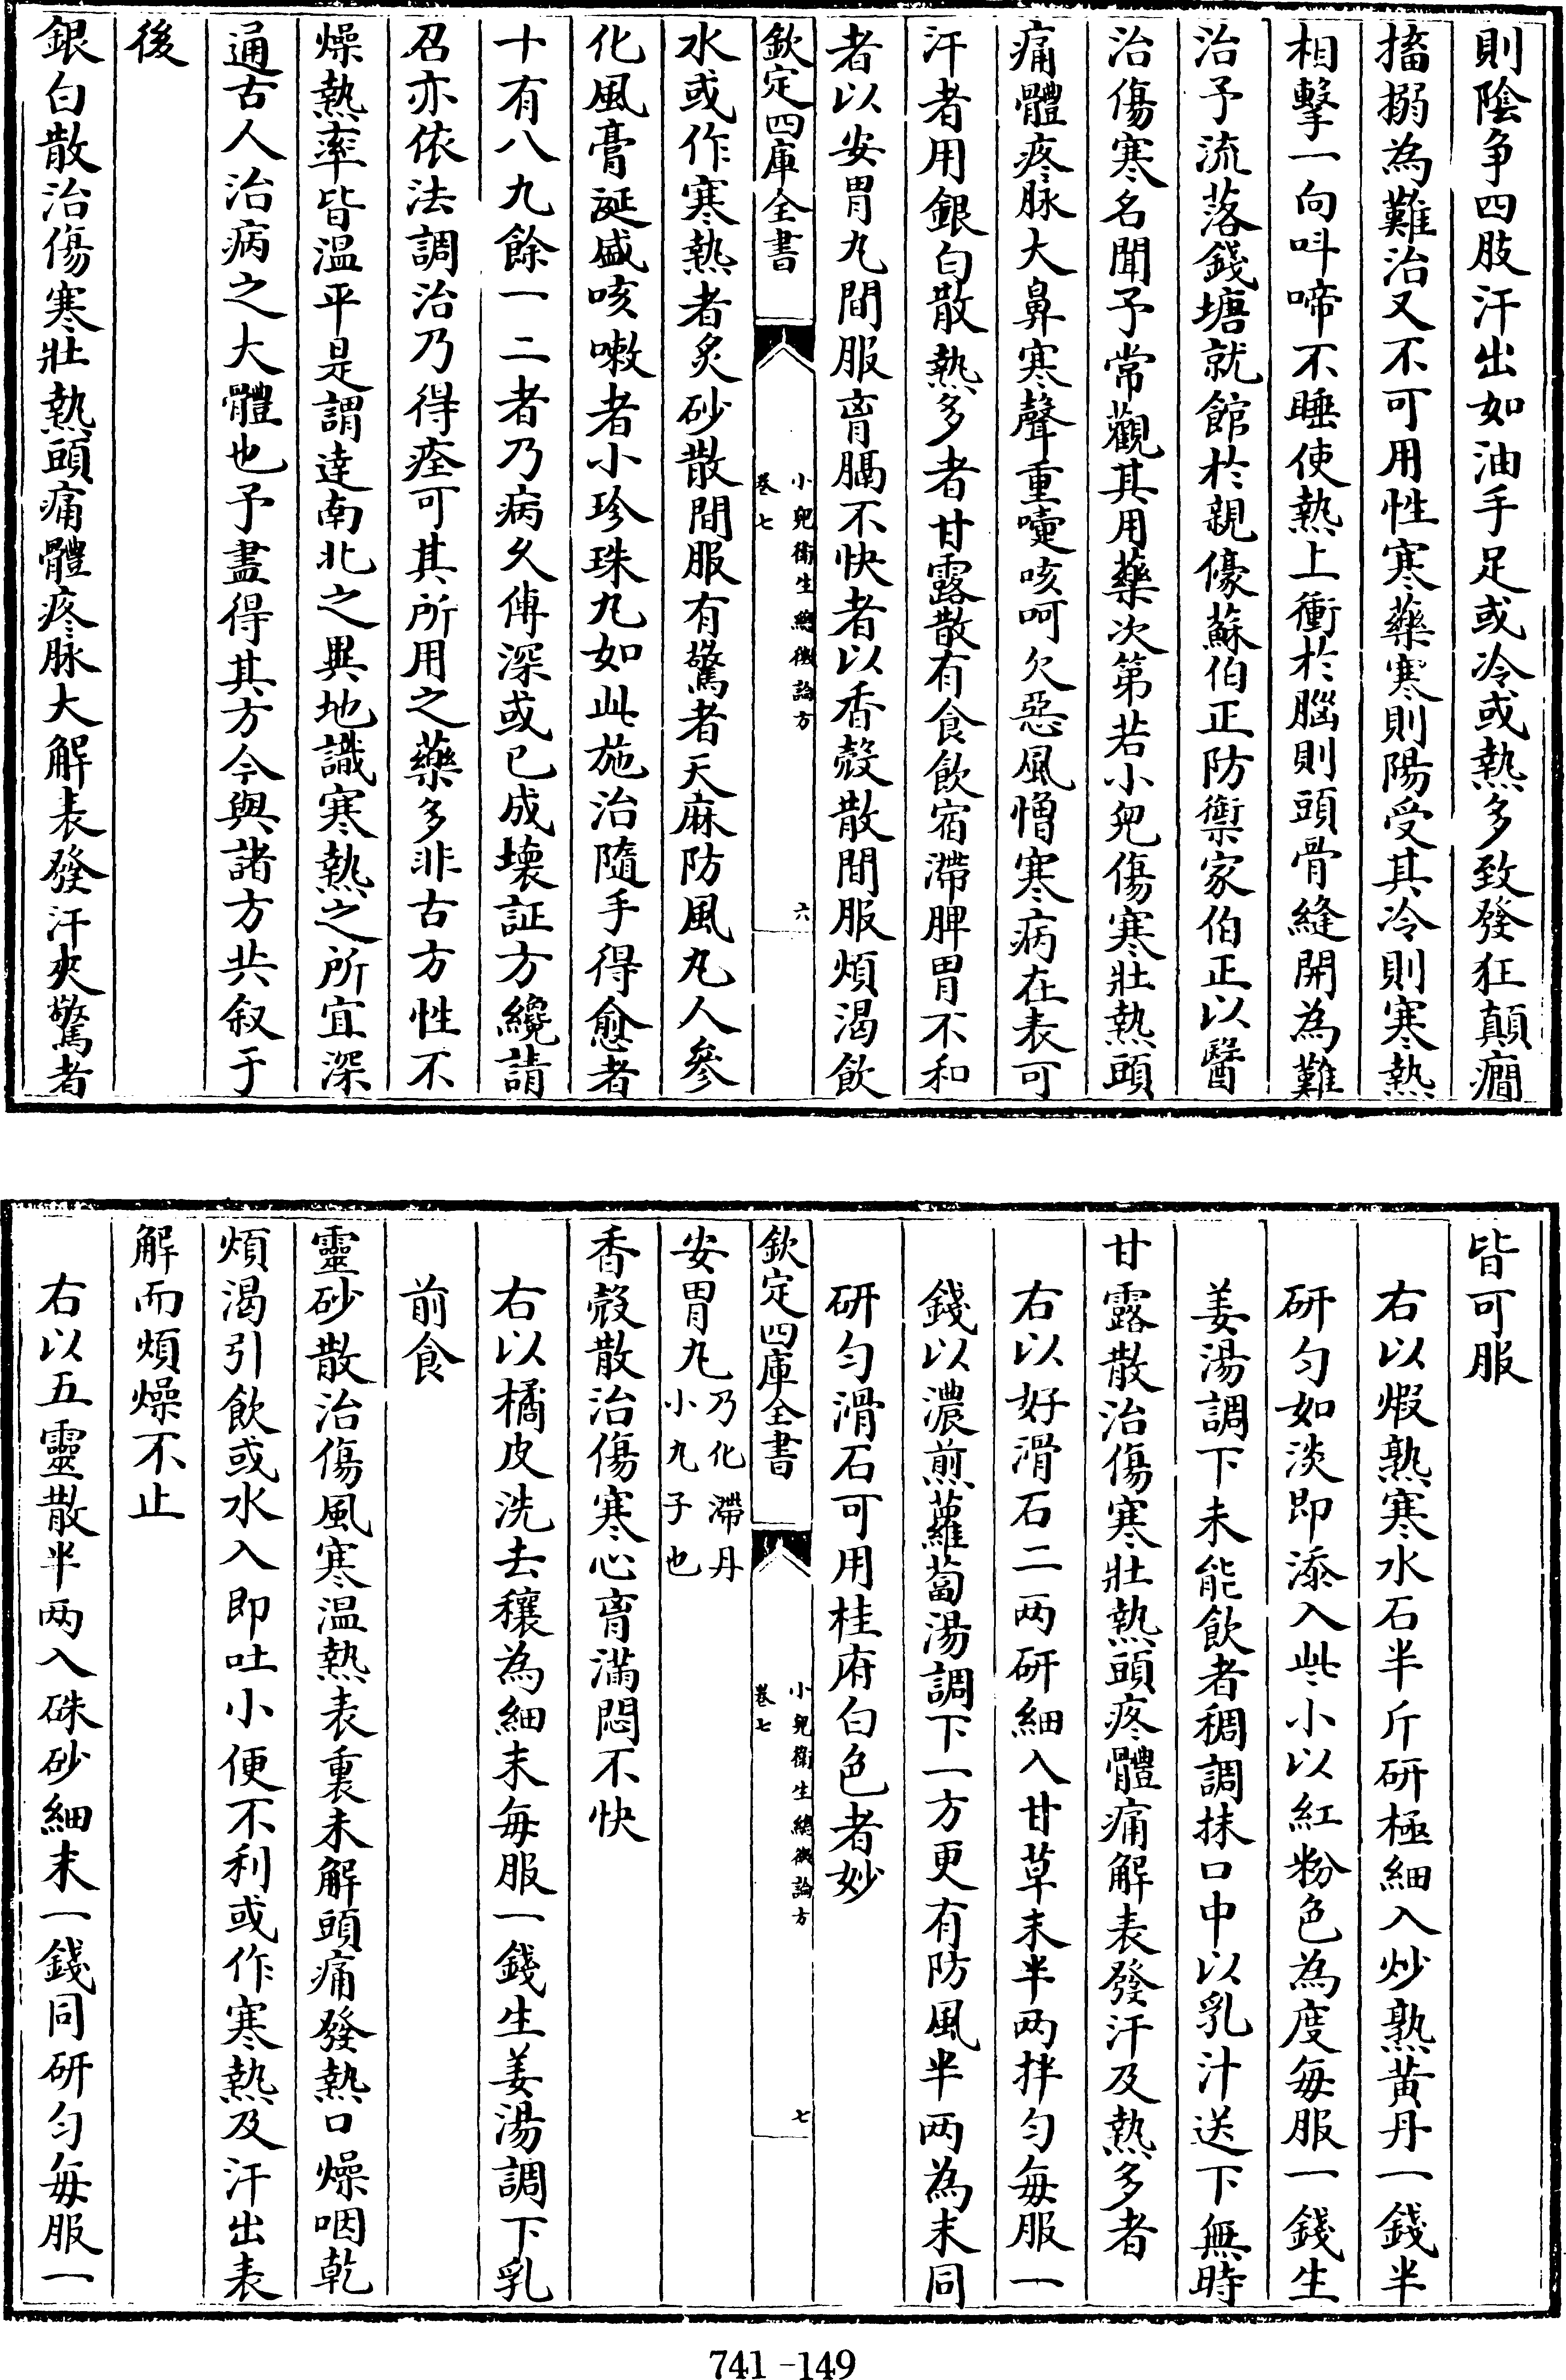 則陰争四肢汗出如油手足或冷或熱多致發狂顛癎
搐搦為難治又不可用性寒藥寒則陽受其冷則寒熱
相擊一向呌啼不睡使熱上衝於腦則頭骨縫開為難
治予流落錢塘就館於親儓蘇伯正防禦家伯正以醫
治傷寒名聞予常觀其用藥次第若小兒傷寒壯熱頭
痛體疼脉大鼻寒聲重嚏咳呵欠惡風憎寒病在表可
汗者用銀白散熱多者甘露散有食飲宿滯脾胃不和
者以安胃丸間服膏膈不快者以香殼散間服煩渴飲
欽定四庫全書
小兒衛生總微論方
卷七
六
水或作寒熱者炙砂散間服有驚者天麻防風丸人參
化風膏涎盛咳嗽者小珍珠丸如此施治隨手得愈者
十有八九餘一二者乃病久傳深或已成壞証方纔請
召亦依法調治乃得痊可其所用之藥多非古方性不
燥熱率皆溫平是謂達南北之異地識寒熱之所宜深
通古人治病之大體也予盡得其方今與諸方共叙于
後
銀白散治傷寒壯熱頭痛體疼脉大解表發汗夾驚者
皆可服
右以煆熟寒水石半斤研極細入炒熟黄丹一錢半
研匀如淡即添入些小以紅粉色為度每服一錢生
姜湯調下未能飲者稠調抹口中以乳汁送下無時
甘露散治傷寒壯熱頭疼體痛解表發汗及熱多者
右以好滑石二两研細入甘草末半两拌匀每服一
錢以濃煎蘿蔔湯調下一方更有防風半两為末同
研匀滑石可用桂府白色者妙
欽定四庫全書
小兒衛生總微論方
卷七
七
安胃丸乃化滯丹
小丸子也
香殼散治傷寒心膏滿悶不快
右以橘皮洗去穰為細末每服一錢生姜湯調下乳
前食
靈砂散治傷風寒溫熱表裏未解頭痛發熱口燥咽乾
煩渴引飲或水入即吐小便不利或作寒熱及汗出表
解而煩燥不止
右以五靈散半两入硃砂細末一錢同研匀每服一
741-149